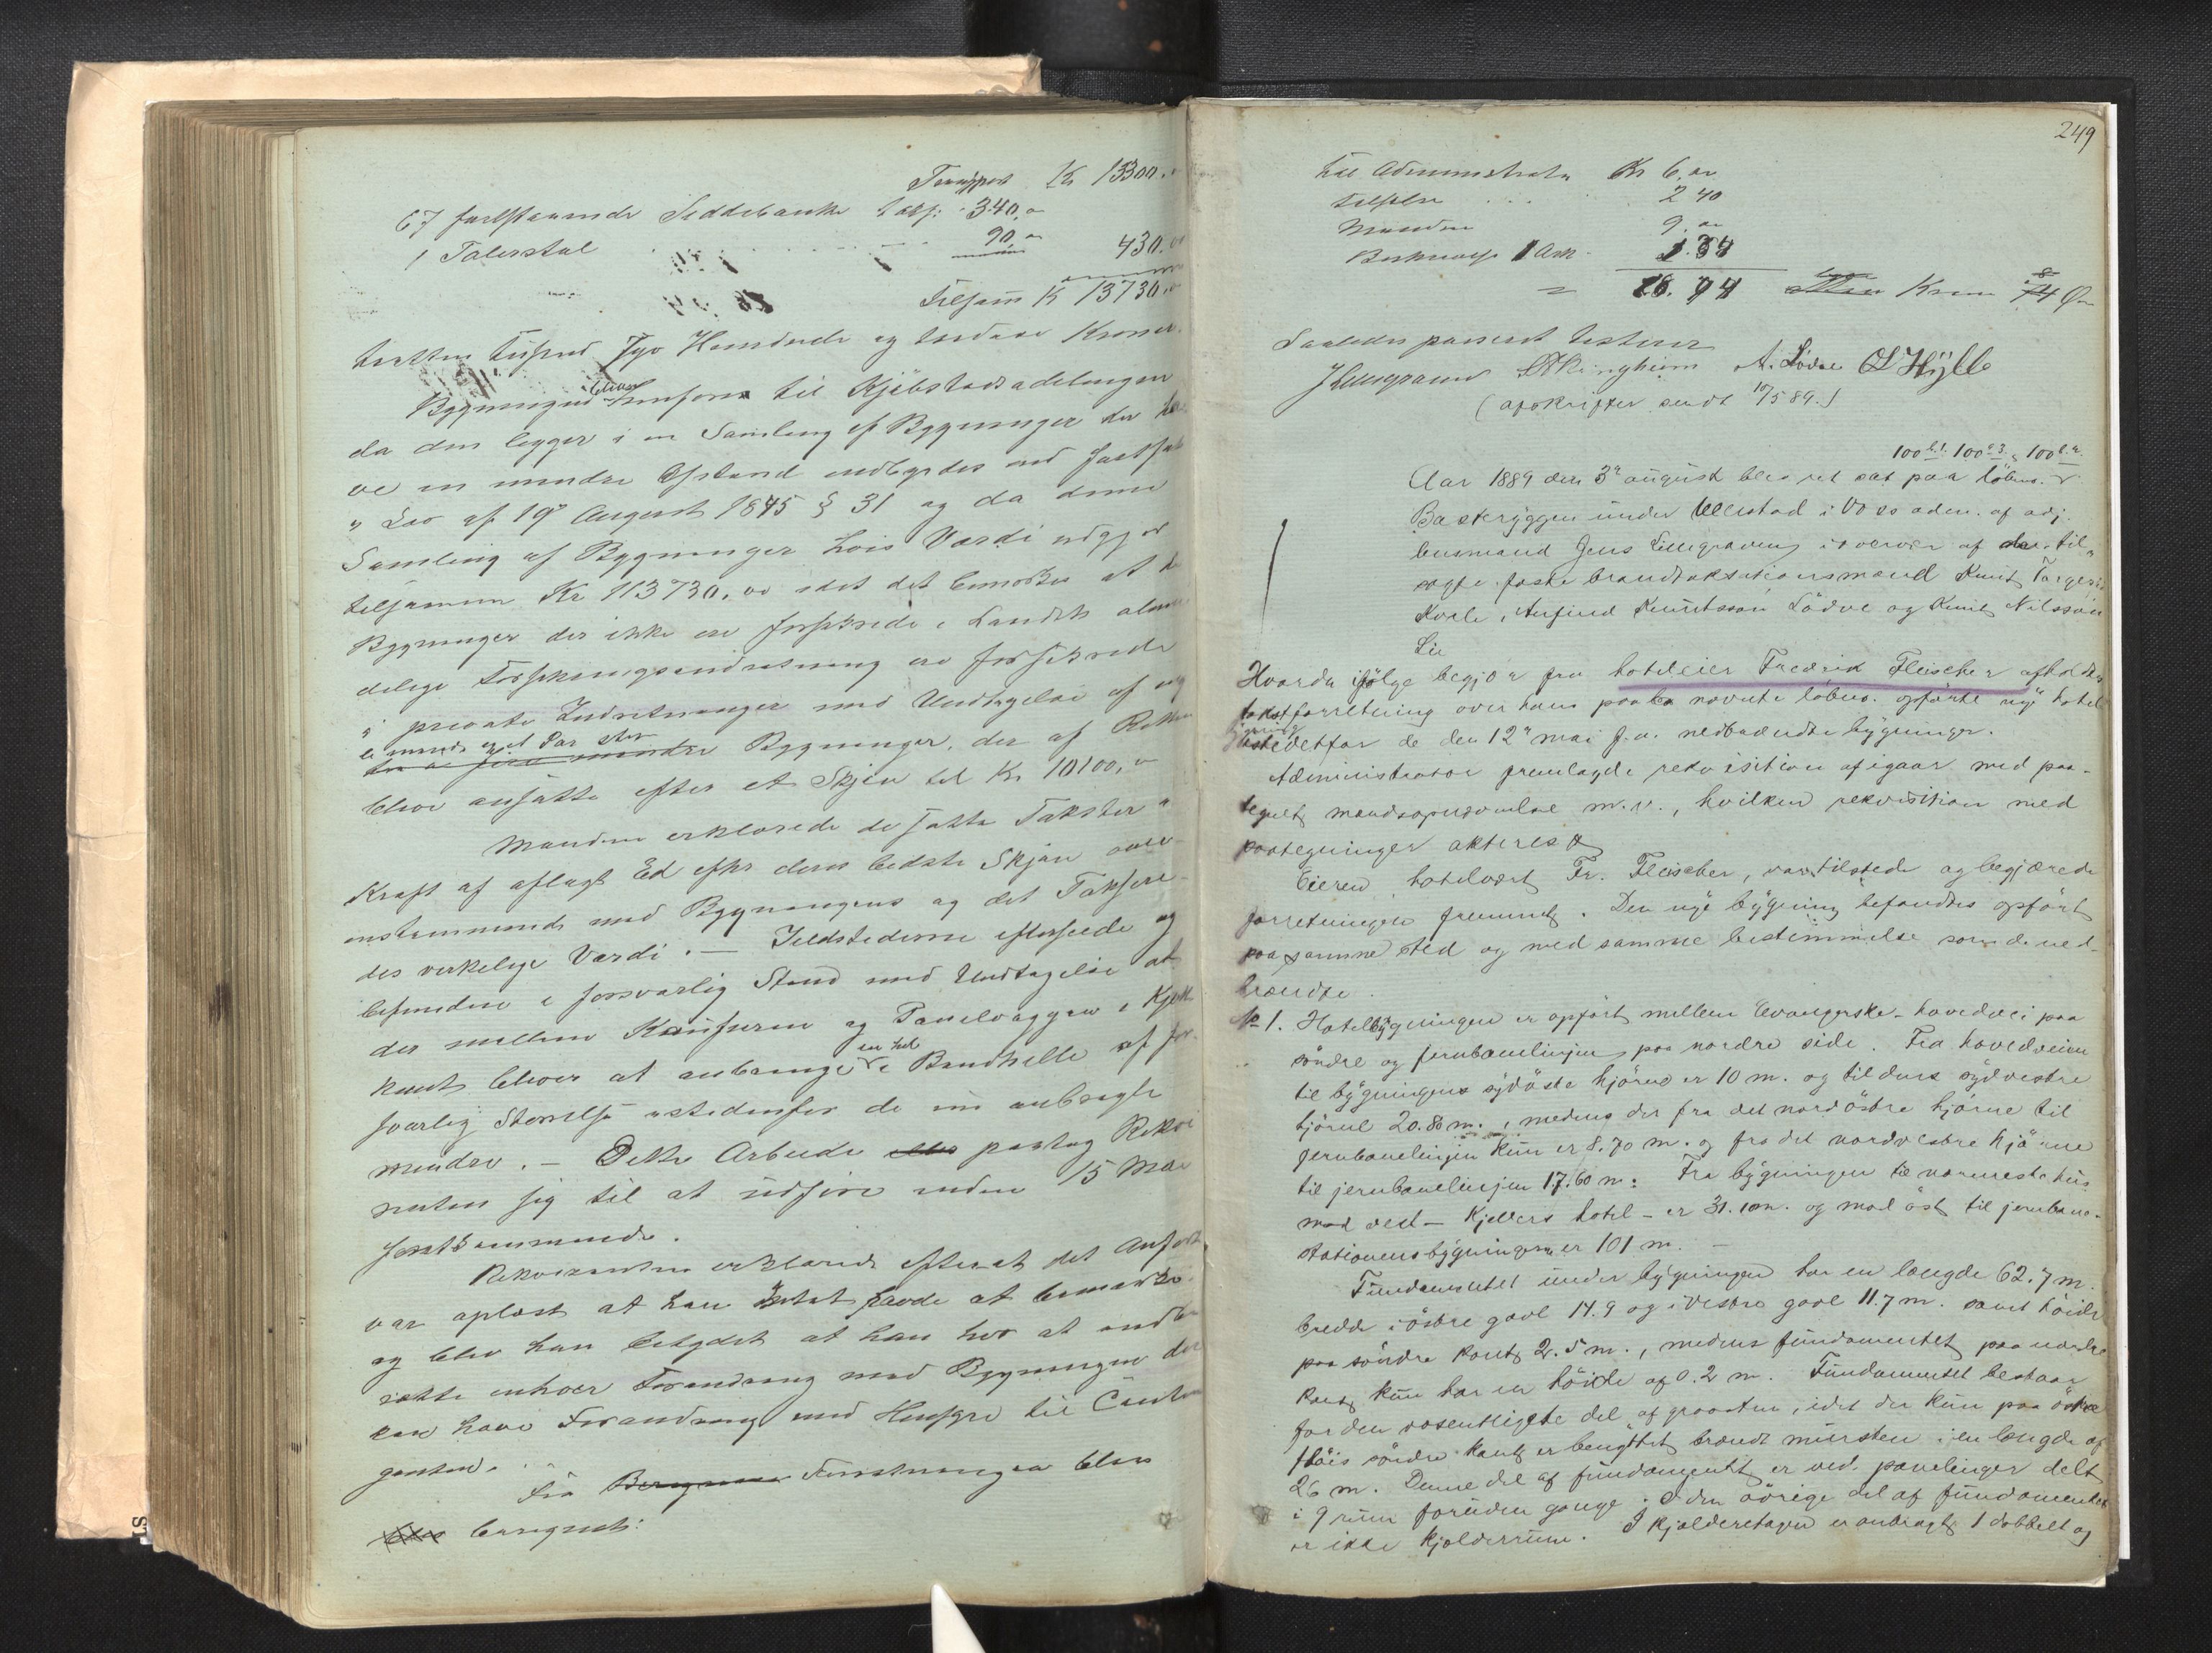 Transport Kr 13300.
67 faststaaende Siddebænke taxf: 340,
1 Talerstol 90, 430.
Tilsam K 13730.
tretten tusend syv Hundrede og tredive Kroner.
Bygningen bliver henføre til Kjøbstadsadelingen
da den ligger i en Samling af Bygninger der
ve en mindre Afstand end
Lov af 19 August 1845 § 31 og da denne
Samling af Bygninger hvis Værdi udgjør
tilsammen Kr 113730, idet det bemærkes at
Bygninger der ikke ere forsikrede i Landets almin
delige Forsikringsindretning ere forsikrede
i private Indretninger med Undtagelse af
et Par
mindre Bygninger, der af Retten
bleve ansatte efter et Skjøn til Kr 10100,
Mændene erklærede de satte Takster i
Kraft af aflagt Ed efter deres bedste Skjøn over-
ensstemmende med Bygningens og det Taksere-
des virkelige Værdi. — Ildstederne efterseede og
befundne i forsvarlig Stand med Undtagelse at
der mellem Kaminerne og Panelvæggen i
bliver at anbringe en hel Brandhelle af for-
svarlig Størrelse istedenfor de nu anbragte
mindre. — Dette Arbeide paatog Rekvi
renten sig til at udføre inden 15 Mai
førstkommende.
Rekvirenten erklærede efterat det Anførte
var oplæst at han Intet havde at bemærke
og blev han betydet at han har at
enhver Forandring med Bygningen der
kan have Forandring med Hensyn til Contin
genten.
Fra Forretningen blev
beregnet:
249
Til Administrator Kr 6.
2 40
Mændene 9.
Beskrivelse 1 Ark 1.34
= 18.74 Kroner Øre
Saaledes passeret testerer
J Lillegraven A. Lödve O L Hylle
(afskrifter sendt 10/5 89.)
100 100 100
Aar 1889 den 3 august blev ret sat paa löbno.
Bakeryggen under Ullestad i Voss aden. af adj.
lensmand Jens Lillegraven i overvær af de til-
sagte faste brandtakstionsmænd Knut Torgersen
Kvale, Anfind Knutsson Lödve og Knut Nilsson
Lie
Hvorda ifölge begjær fra hoteleier Fredrik Fleischer afholdes
takstforretning over hans paa benævnte löbno. opförte nye hotel
istedetfor de den 12 mai f.a. nedbrændte bygninger.
Administrator fremlagde rekvisition af igaar med paa-
tegnet mandsopnævnelse m.v., hvilken rekvisition med
paategninger akteres
Eieren hotelvært Fr. Fleischer, var tilstede og begjærede
forretningen fremmet. Den nye bygning befandtes opfört
paa samme sted og med samme bestemmelse som de ned-
brændte.
No 1. Hotelbygningen er opfört mellem Evangerske hovedvei paa
söndre og jernbanelinjen paa nordre side. Fra hovedveien
til bygningens sydöstre hjörne er 10 m. og til dens sydvestre
hjörne 20.80 m., medens der fra det nordöstre hjörne til
jernbanelinjen kun er 8.70 m. og fra det nordvestre hjörne
til jernbanelinjen 17.60 m. Fra bygningen til nærmeste hus
mod vest - Kjellers hotel - er 31.10 m. og mod öst til jernbane-
stationensbygningen er 101 m. —
Fundamentet under bygningen har en længde 62.7 m.
bredde i östre gavl 14.9 og i vestre gavl 11.7 m. samt höide
paa söndre kant 2.5 m., medens fundamentet paa nordre
kant kun har en höide af 0.2 m. Fundamentet bestaar
for den væsentligste del af graasten, idet der kun paa östre
flöis söndre kant er benyttet brændt mursten i en længde af
26 m. Denne del af fundamentet er ved panelinger delt
i 9 rum foruden gange. I den övrige del af fundamentet
er ikke kjælderrum. I kjælderetagen er anbragt 1 dobbelt og